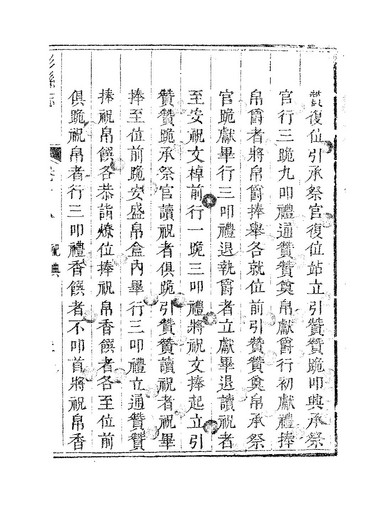 贊復位引承祭官復位站立引贊贊跪叩興承祭
官行三跪九叩禮通贊贊奠帛獻爵行初獻禮捧
帛爵者將帛爵捧舉各就位前引贊贊奠帛承祭
官跪獻畢行三叩禮退執爵者立獻畢退讀祝者
至安祝文棹前行一跪三叩禮將祝文捧起立引
贊贊跪承祭官讀祝者俱跪引贊贊讀祝者祝畢
捧至位前跪安盛帛盒內畢行三叩禮立通贊贊
捧祝帛饌各恭詣燎位捧祝帛香饌者各至位前
俱跪祝帛者行三叩禮香饌者不叩首將祝帛香
縣志
祀典